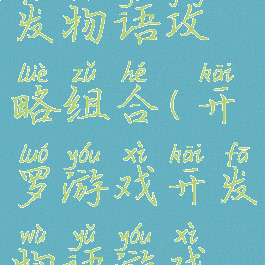 发物语攻
lüè zǔ hé kāi
略组合(开
luó yóu xì kāi fā
罗游戏开发
wù yǔ yóu xì
物语游戏